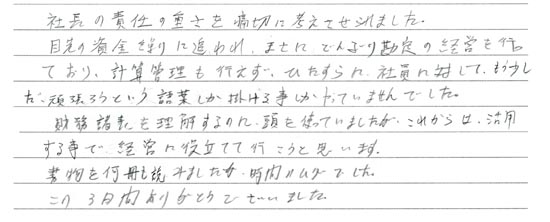 社長の責任の重さを痛切に考えさせられました。
目先の資金繰りに追われ、まさに、どんぶり勘定の経営を行っ
ており、計算管理も行えず、ひたすらに、社員に対して、もう少し
だ、頑張ろうという言葉しか掛ける事しかやっていませんでした。
財務諸表を理解するのに、頭を使っていましたが、これからは、活用
する事で、経営に役立てて行こうと思います。
書物を何冊も読みましたが、時間のムダでした。
この3日間ありがとうございました。